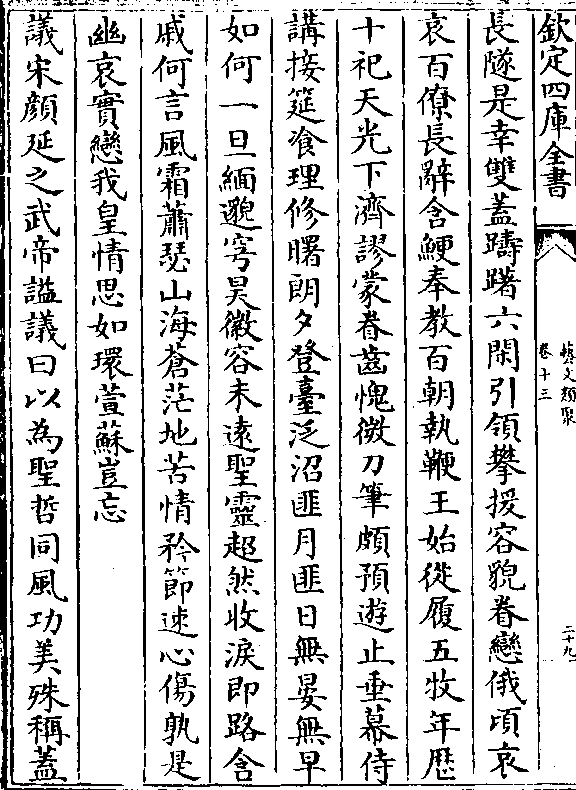 欽定四庫全書
藝文類聚
卷十三
二十九
長隧是幸雙蓋躊躇六閑引領攀援容貌眷戀俄頃哀
哀百僚長辭含鯁奉教百朝執鞭王始從履五牧年歷
十祀天光下濟謬蒙眷齒愧微刀筆頗預遊止垂幕侍
講接筵飡理修曙朗夕登臺泛沼匪月匪日無晏無早
如何一旦緬邈穹昊徽容未遠聖靈超然收淚即路含
戚何言風霜蕭瑟山海蒼茫地苦情矜節速心傷孰是
幽哀實戀我皇情思如環萱蘇豈忘
議宋顔延之武帝謚議曰以為聖哲同風功美殊稱蓋